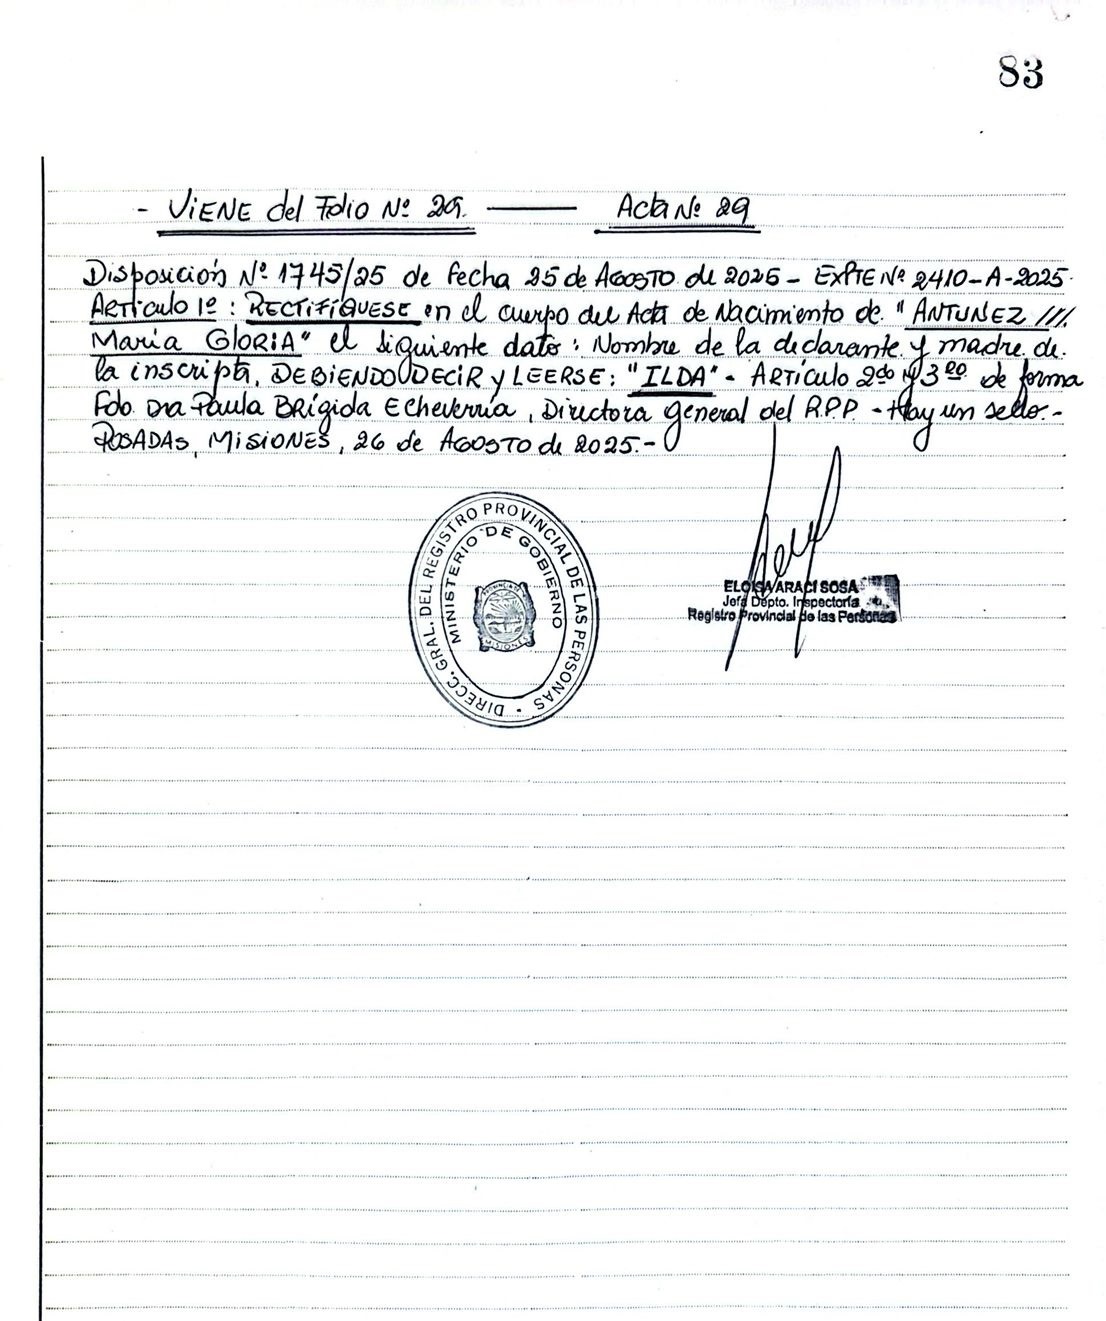 83
- ViENE del Folio Nº 29. ——— Acta Nº 29
Disposición Nº 1745/25 de fecha 25 de AGOSTO de 2025 - EXPTE Nº 2410-A-2025.
ARTículo 1º : RECTIFÍQUESE en el cuerpo del Acta de Nacimiento de "ANTUNEZ ///.
María GLORIA" el siguiente dato : Nombre de la declarante y madre de
la inscripta, DEBIENDO DECIR y LEERSE : "ILDA" - ARTículo 2do y 3ro de forma
Fdo. Dra Paula BRígida Echeverría, Directora General del R.P.P. - Hay un sello.-
POSADAS, MISIONES, 26 de AGOSTO de 2025.-
DIRECC. GRAL. DEL REGISTRO PROVINCIAL DE LAS PERSONAS
MINISTERIO DE GOBIERNO
MISIONES
ELOISA ARACI SOSA
Jefa Dpto. Inspectoría
Registro Provincial de las Personas